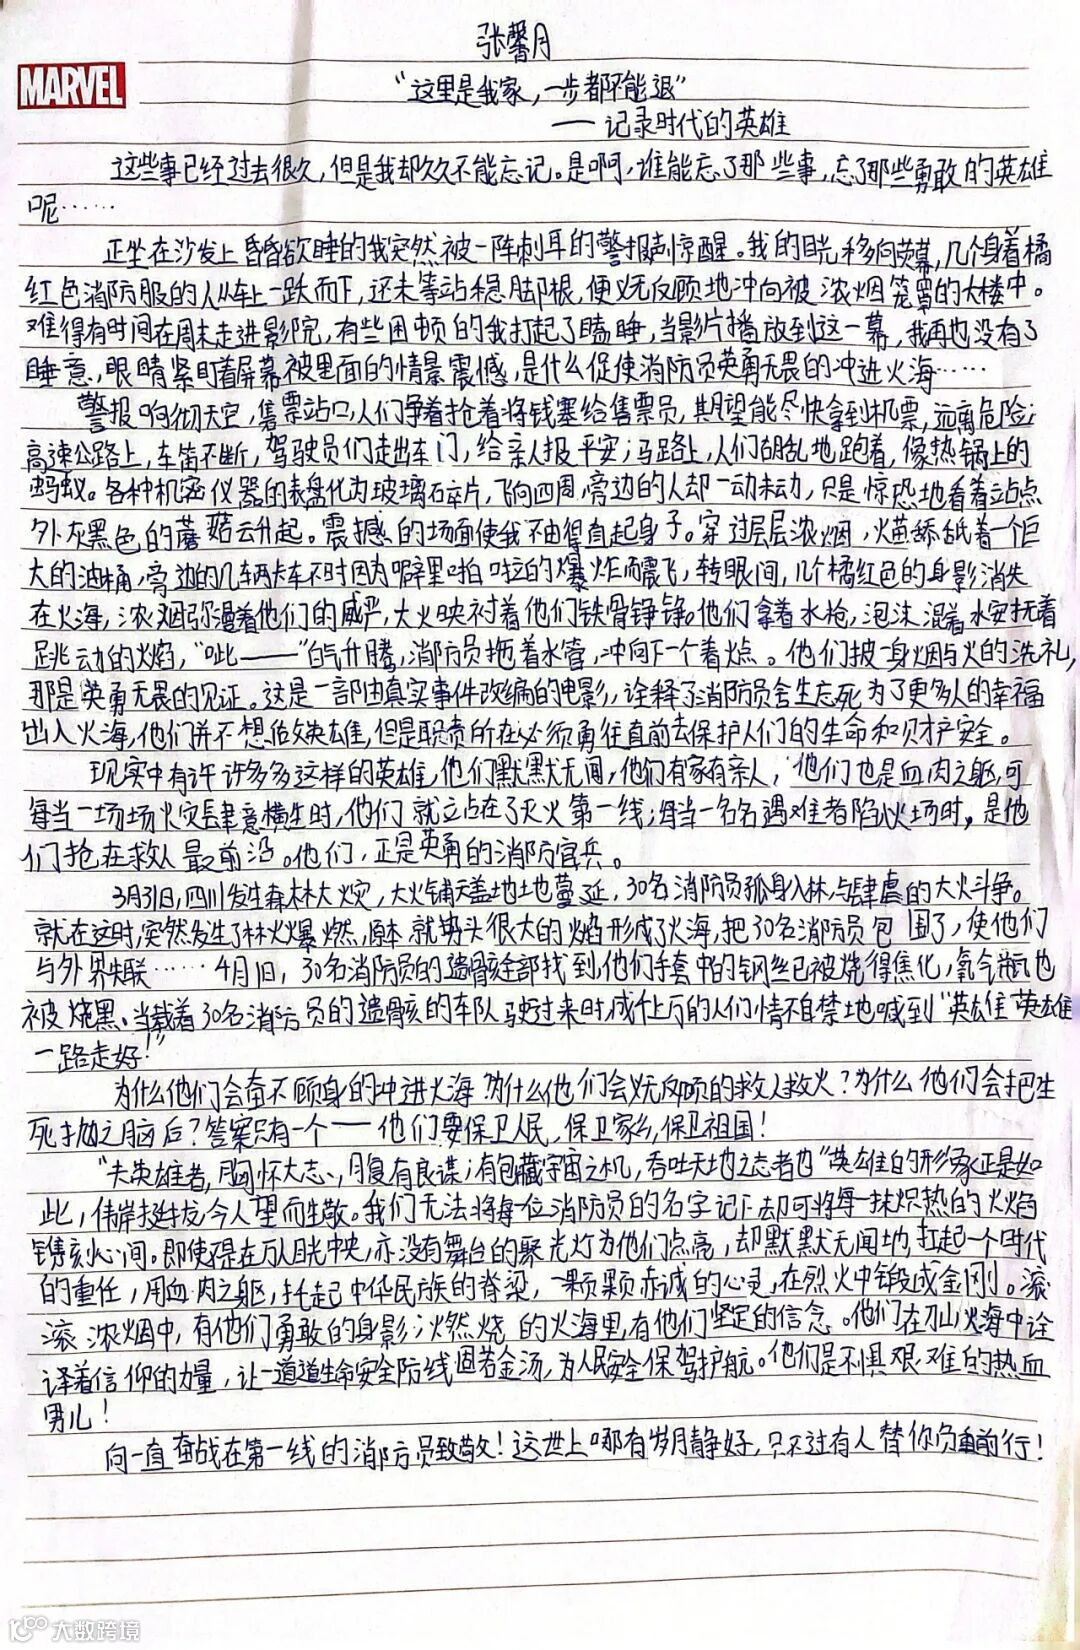 张馨月
MARVEL
“这里是我家，一步都不能退”
——记录时代的英雄
这些事已经过去很久，但是我却久久不能忘记。是啊，谁能忘了那些事，忘了那些勇敢的英雄
呢……
正坐在沙发上昏昏欲睡的我突然被一阵刺耳的警报声惊醒。我的目光移向荧幕，几个身着橘
红色消防服的人从车上一跃而下，还未等站稳脚根，便义无反顾地冲向被浓烟笼罩的大楼中。
难得有时间在周末走进影院，有些困顿的我打起了瞌睡，当影片播放到这一幕，我再也没有了
睡意，眼睛紧盯着屏幕被里面的情景震憾，是什么促使消防员英勇无畏的冲进火海……
警报响彻天空，售票站口，人们争着抢着将钱塞给售票员，期望能尽快拿到机票，远离危险；
高速公路上，车笛不断，驾驶员们走出车门，给亲人报平安；马路上，人们胡乱地跑着，像热锅上的
蚂蚁。各种机密仪器的表盘化为玻璃碎片，飞向四周，旁边的人却一动未动，只是惊恐地看着站点
外灰黑色的蘑菇云升起。震撼的场面使我不由得直起身子。穿过层层浓烟，火苗舔舐着一个巨
大的油桶，旁边的几车两卡车不时因为噼里啪啦的爆炸而震飞，转眼间，几个橘红色的身影消失
在火海，浓烟弥漫着他们的威严，大火映衬着他们铁骨铮铮。他们拿着水枪，泡沫混着水安抚着
跳动的火焰，“呲——”白气升腾，消防员拖着水管，冲向下一个着火点。他们披一身烟与火的洗礼，
那是英勇无畏的见证。这是一部由真实事件改编的电影，诠释了消防员舍生忘死为了更多人的幸福
出入火海，他们并不想做英雄，但是职责所在必须勇往直前去保护人们的生命和财产安全。
现实中有许许多多这样的英雄，他们默默无闻，他们有家有亲人，他们也是血肉之躯，可
每当一场场火灾肆意横生时，他们就站在了灭火第一线；每当一名名遇难者陷入火场时，是他
们抢在救人最前沿。他们，正是英勇的消防官兵。
3月31日，四川发生森林大火灾，大火铺天盖地地蔓延，30名消防员孤身入林，与肆虐的大火斗争。
就在这时，突然发生了林火爆燃，原本就势头很大的火焰形成了火海，把30名消防员包围了，使他们
与外界失联……4月1日，30名消防员的遗骸全部找到，他们手套中的钢丝已被烧得焦化，氧气瓶也
被烧黑、当载着30名消防员的遗骸的车队驶过来时，成千上万的人们情不自禁地喊到“英雄英雄
一路走好！”
为什么他们会奋不顾身的冲进火海？为什么他们会义无反顾的救人救火？为什么他们会把生
死抛之脑后？答案只有一个——他们要保卫人民，保卫家乡，保卫祖国！
“夫英雄者，胸怀大志、腹有良谋；有包藏宇宙之机，吞吐天地之志者也”英雄的形象正是如
此，伟岸挺拔令人望而生敬。我们无法将每一位消防员的名字记下却可将每一抹炽热的火焰
镌刻心间。即使不是在万人目光中央，亦没有舞台的聚光灯为他们点亮，却默默无闻地，扛起一个时代
的重任，用血肉之躯，托起中华民族的脊梁，一颗颗赤诚的心灵，在烈火中锻成金刚。滚
滚浓烟中，有他们勇敢的身影；火燃烧的火海里，有他们坚定的信念。他们在刀山火海中诠
译着信仰的力量，让一道道生命安全防线固若金汤，为人民安全保驾护航。他们是不惧艰难的热血
男儿！
向一直奋战在第一线的消防员致敬！这世上哪有岁月静好，只不过有人替你负重前行！
大数跨境